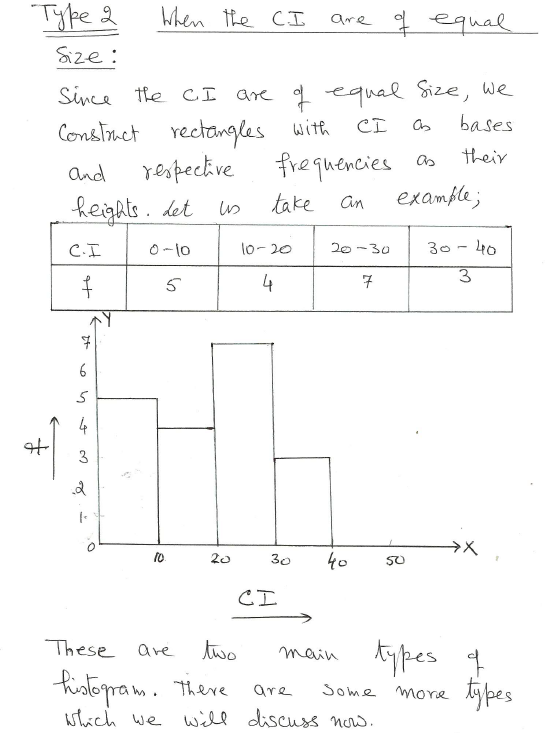 Type 2 When the CI are of equal
Size:
Since the CI are of equal Size, We
Construct rectangles with CI as bases
and respective frequencies as their
heights. Let us take an example;
C.I 0-10 10-20 20-30 30-40
f 5 4 7 3
Y
7
6
5
4
f
3
2
1
0
10 20 30 40 50 X
CI
These are two main types of
histogram. There are some more types
which we will discuss now.